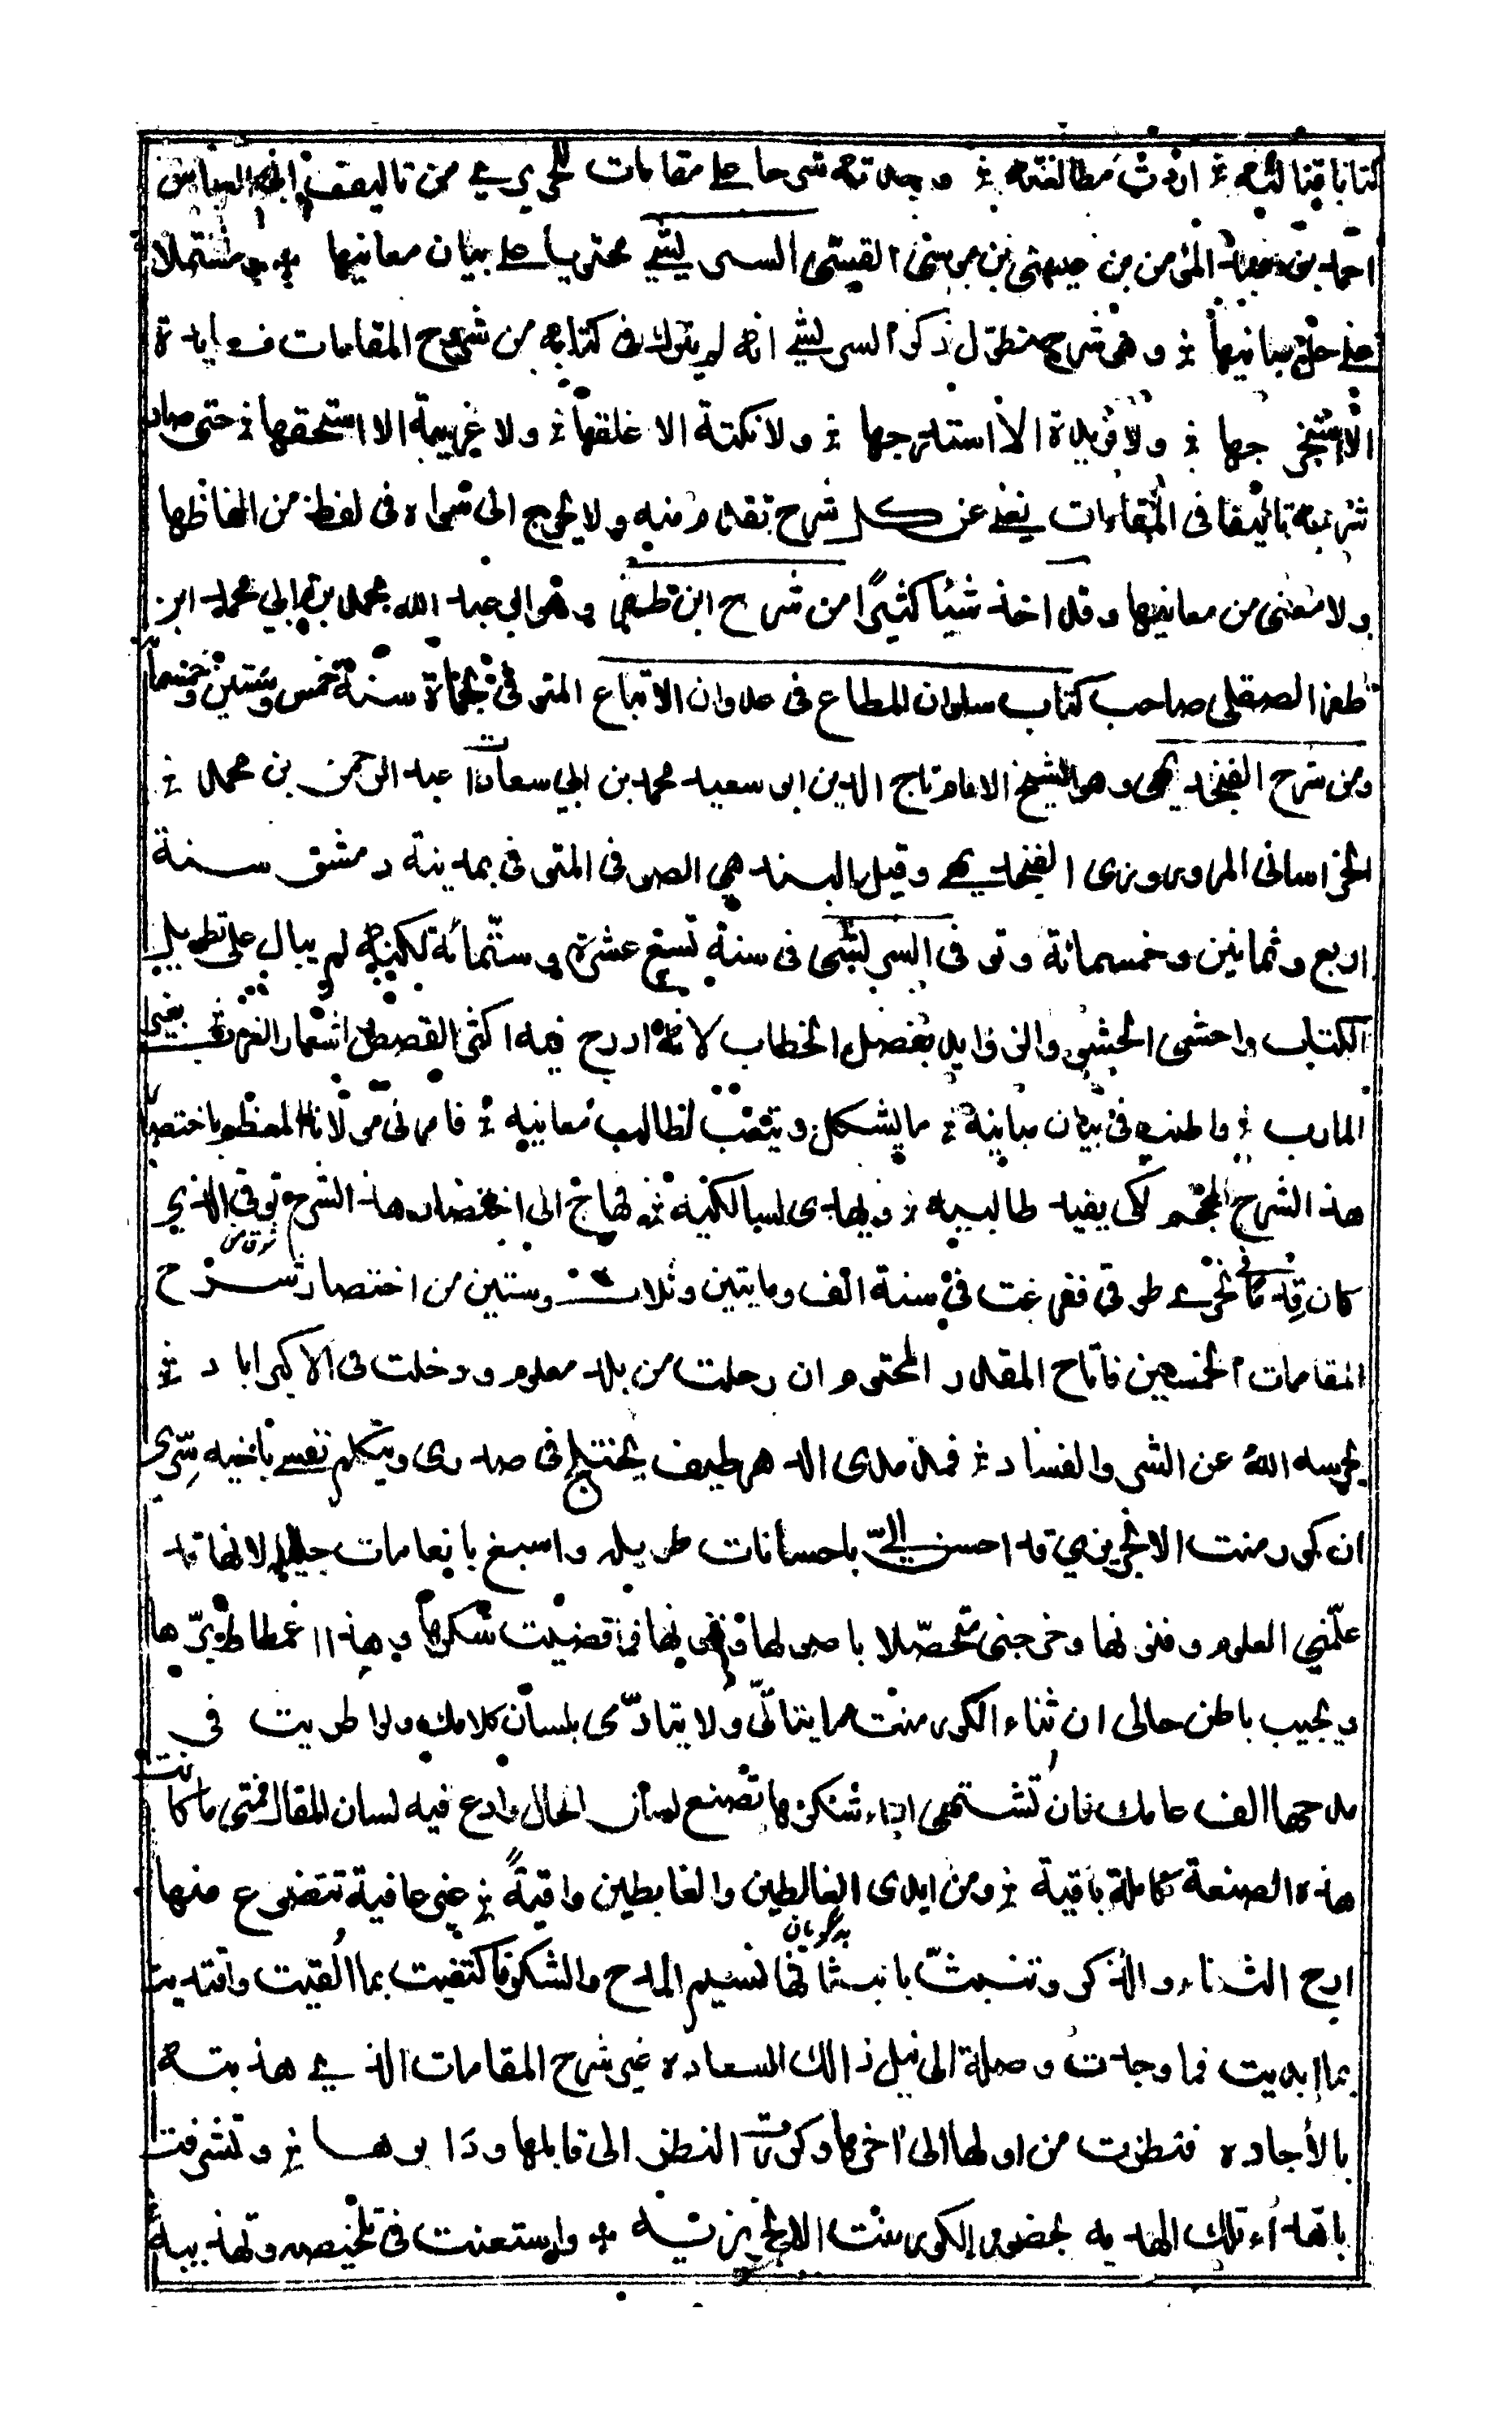 كتابا قبالته ؛ اردت مطالعته ؛ وجدته شرحا على مقامات الحريري من تاليف ابي العباس
احمد بن عبد المؤمن بن عيسى بن موسى القيسي الشريشي محتويا على بيان معانيها ؛ مشتملا
على حل مبانيها ؛ وهو شرح مطول ذكر الشريشي انه لم يترك في كتابه من شروح المقامات فايدة
الا استخرجها ؛ ولا فريدة الا استدرجها ؛ ولا نكتة الا علقها ؛ ولا غريبة الا استحقها ؛ حتى صار
شرحه تاليفا في المقامات يغني عن كل شرح تقدم منه ولا يحوج الى سواه في لفظ من الفاظها
ولا معنى من معانيها وقد اخذ شيئا كثيرًا من شرح ابن ظفر وهو ابي عبد الله محمد بن ابي محمد ابن
ظفر الصقلي صاحب كتاب سلوان المطاع في عدوان الاتباع المتوفى بحماة سنة خمس وستين وخمسمأ
ومن شرح الفنجديهي وهو الشيخ الامام تاج الدين ابو سعيد محمد بن ابي سعادات عبد الرحمن بن محمد ؛
الخراساني المروروزي الفنجديهي وقيل البندهي الصوفي المتوفى بمدينة دمشق سنة
اربع وثمانين وخمسمائة وتوفى الشريشي في سنة تسع عشرة وستمائة لكنه لم يبال على تطويل
الكتاب واحشى الحشو والزوايد بفصل الخطاب لانه ادرج فيه اكثر القصص اشعار العرب بغير
المارب ؛ واطنب في بيان مبانيه ؛ ما يشكل ويتعب لطالب معانيه ؛ فامرني مولانا المعظم باختصار
هذ الشرح لكي يفيد طالبيه ؛ ويهدي لسالكيه ؛ فهاج الى اختصار هذ الشرح توقي الذي
شوق من
كان قد ما في طوقي ففرغت في سنة الف ومايتين وثلاث وستين من اختصار شرح
المقامات الخمسين فاتاح المقدر المحتوم ان رحلت من بلد معلوم ودخلت في الاكبراباد ؛
يحرسه الله عن الشر والفساد ؛ فمذ مدى الدهر طيف يختلج في صدري ويتكلم نفسي باخيه سِرّي
ان كورمنت الانجريزي قد احسن اليّ باحسانات طويله واسبغ بانعامات جليله لانها قد
علّمني العلوم وفنونها وخرجني محصّلا باصولها وفنونها فما قضيت شكرها وهذا غمطا لبرّها
ويجيب باطن حالي ان ثناء الكورمنت مما يتاتّى ولا يتادّى بلسان كلامك ولو اطريت في
مدحها الف عامك فان تشتهي اداء شكرها تصنع لسان الحال وادع فيه لسان المقال فمتى ما كانت
هذه الصنعة كاملة باقية ؛ ومن ايدي الغالطين والغابطين واقيةً ؛ عني عافية تتضوع منها
بدگويان
ارج الثناء والذكر وتنبث بانبثاثها نسيم المدح والشكر فاكتفيت بما القيت واقتديت
بما ابديت فما وجدت وصلة الى نيل ذالك السعاده غير شرح المقامات الذي هذبته
بالأجاده فنظرت من اولها الى اخرها وكررت النظر الى قابلها ودابرها ؛ وتشرفت
باهداء تلك الهديه بحضور الكورمنت الانجريزيه ؛ واستعنت في تلخيصه وتهذيبه